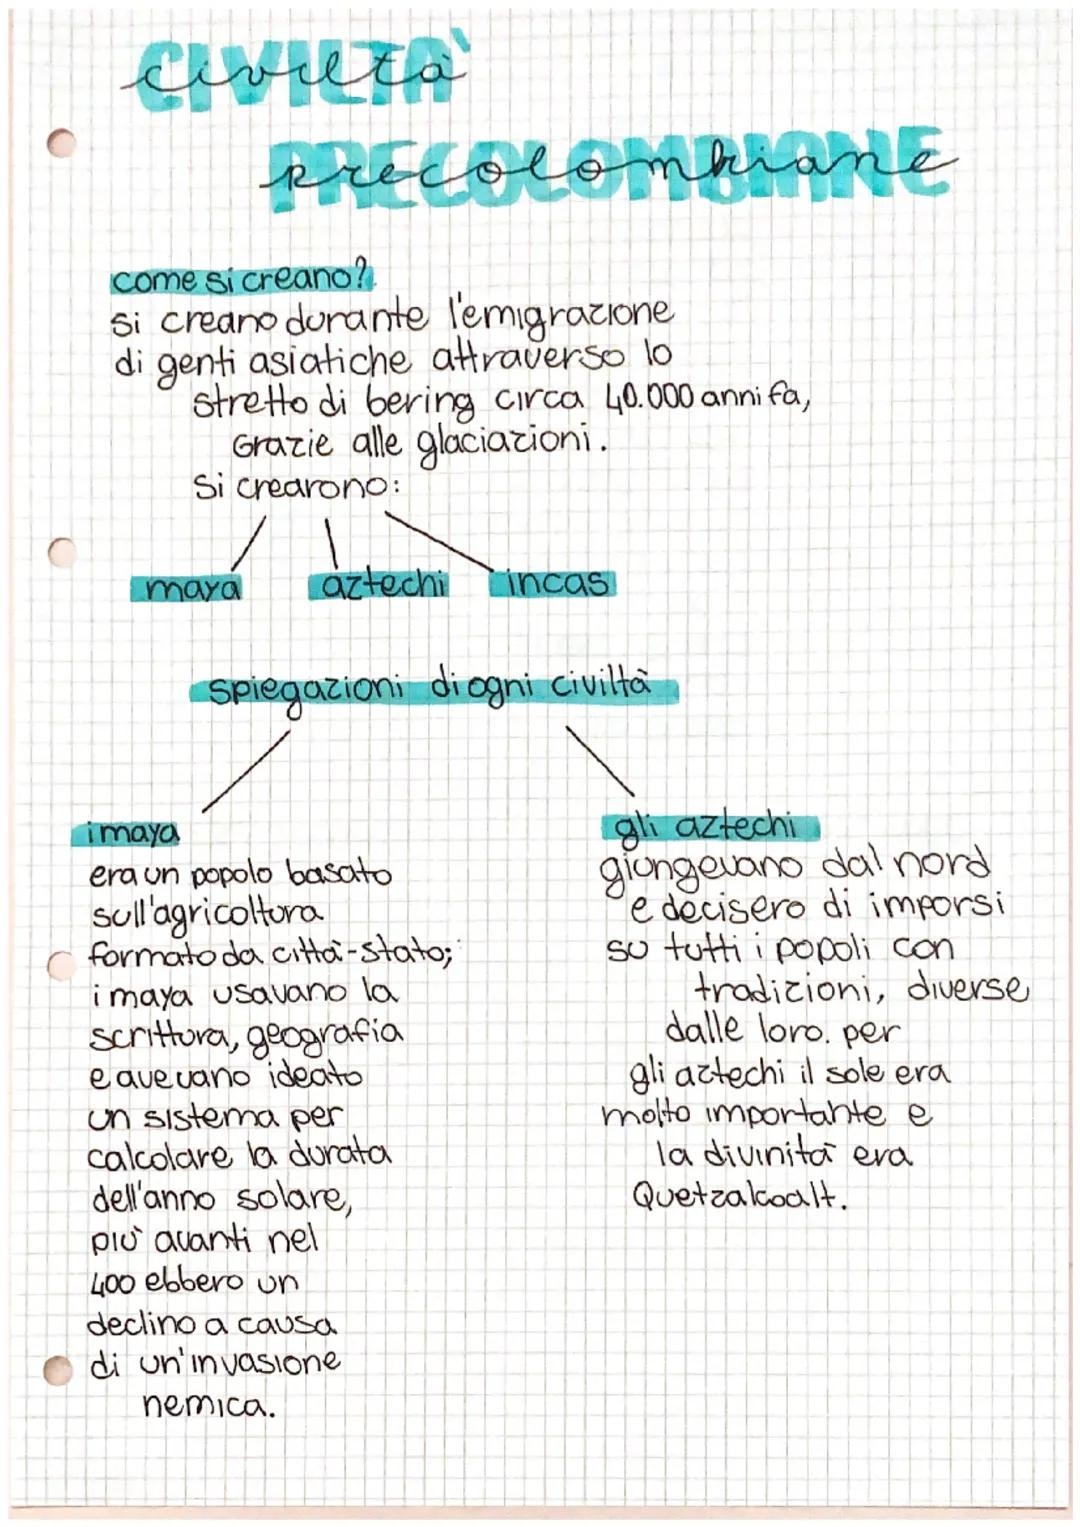 CIVILTÀ
civiltà
PRECOLOMBIANE
precolombiane
come si creano?
si creano durante l'emigrazione
di genti asiatiche attraverso lo
stretto di bering circa 40.000 anni fa,
Grazie alle glaciazioni.
Si crearono:
maya aztechi incas
spiegazioni di ogni civiltà
i maya
era un popolo basato
sull'agricoltura
formato da città-stato;
i maya usavano la
scrittura, geografia
e avevano ideato
un sistema per
calcolare la durata
dell'anno solare,
più avanti nel
400 ebbero un
declino a causa
di un'invasione
nemica.
gli aztechi
giungevano dal nord
e decisero di imporsi
su tutti i popoli con
tradizioni, diverse
dalle loro. per
gli aztechi il sole era
molto importante e
la divinità era
Quetzalcoalt.